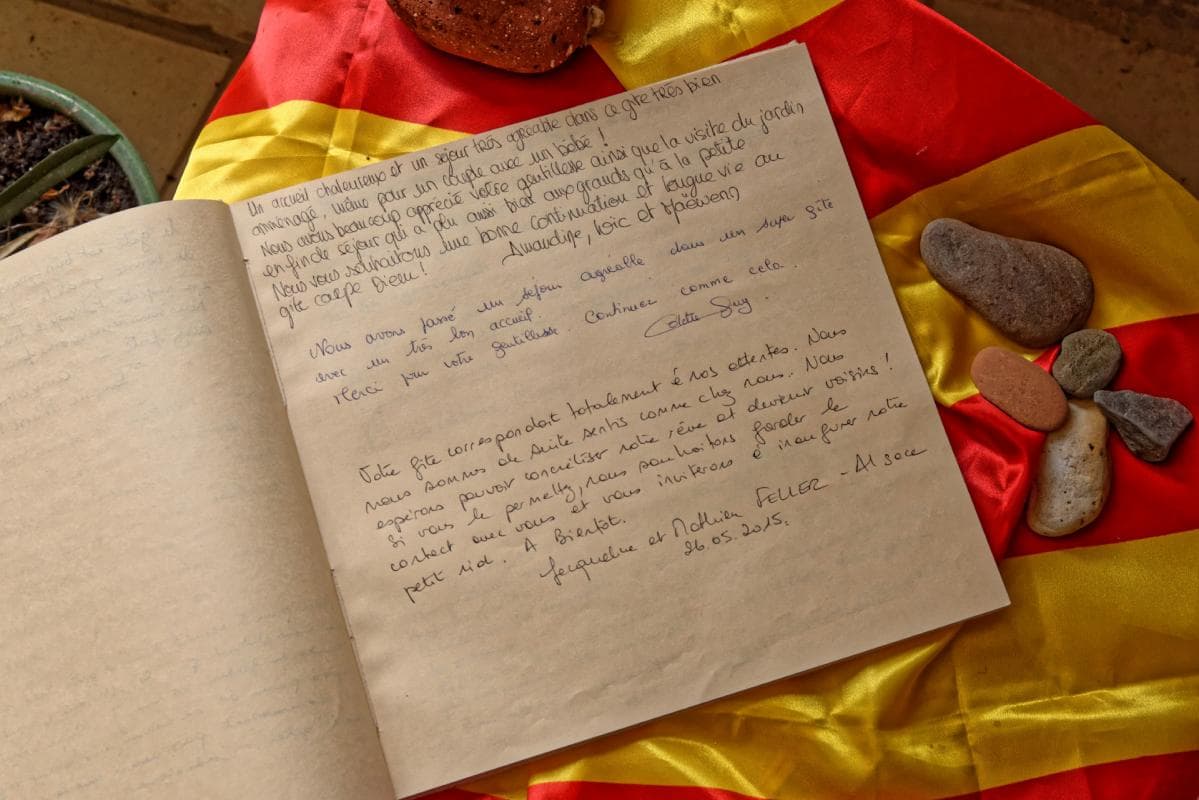 Un accueil chaleureux et un séjour très agréable dans ce gîte très bien
aménagé, même pour un couple avec un bébé !
Nous avons beaucoup apprécié votre gentillesse ainsi que la visite du jardin
en fin de séjour qui a plu aussi bien aux grands qu'à la petite
Nous vous souhaitons une bonne continuation et longue vie au
gîte carpe Diem ! Amandine, Loïc et Maëwenn
Nous avons passé un séjour agréable dans un super gîte
avec un très bon accueil.
Merci pour votre gentillesse. Continuez comme cela.
Guy.
Votre gîte correspondait totalement é nos attentes. Nous
nous sommes de suite sentis comme chez nous. Nous
espérons pouvoir concrétiser notre rêve et devenir voisins !
Si vous le permettez, nous souhaitons garder le
contact avec vous et vous inviterons é inaugurer notre
petit nid. A Bientôt.
Jacqueline et Mathieu FELLER - Alsace
26.05.2015.